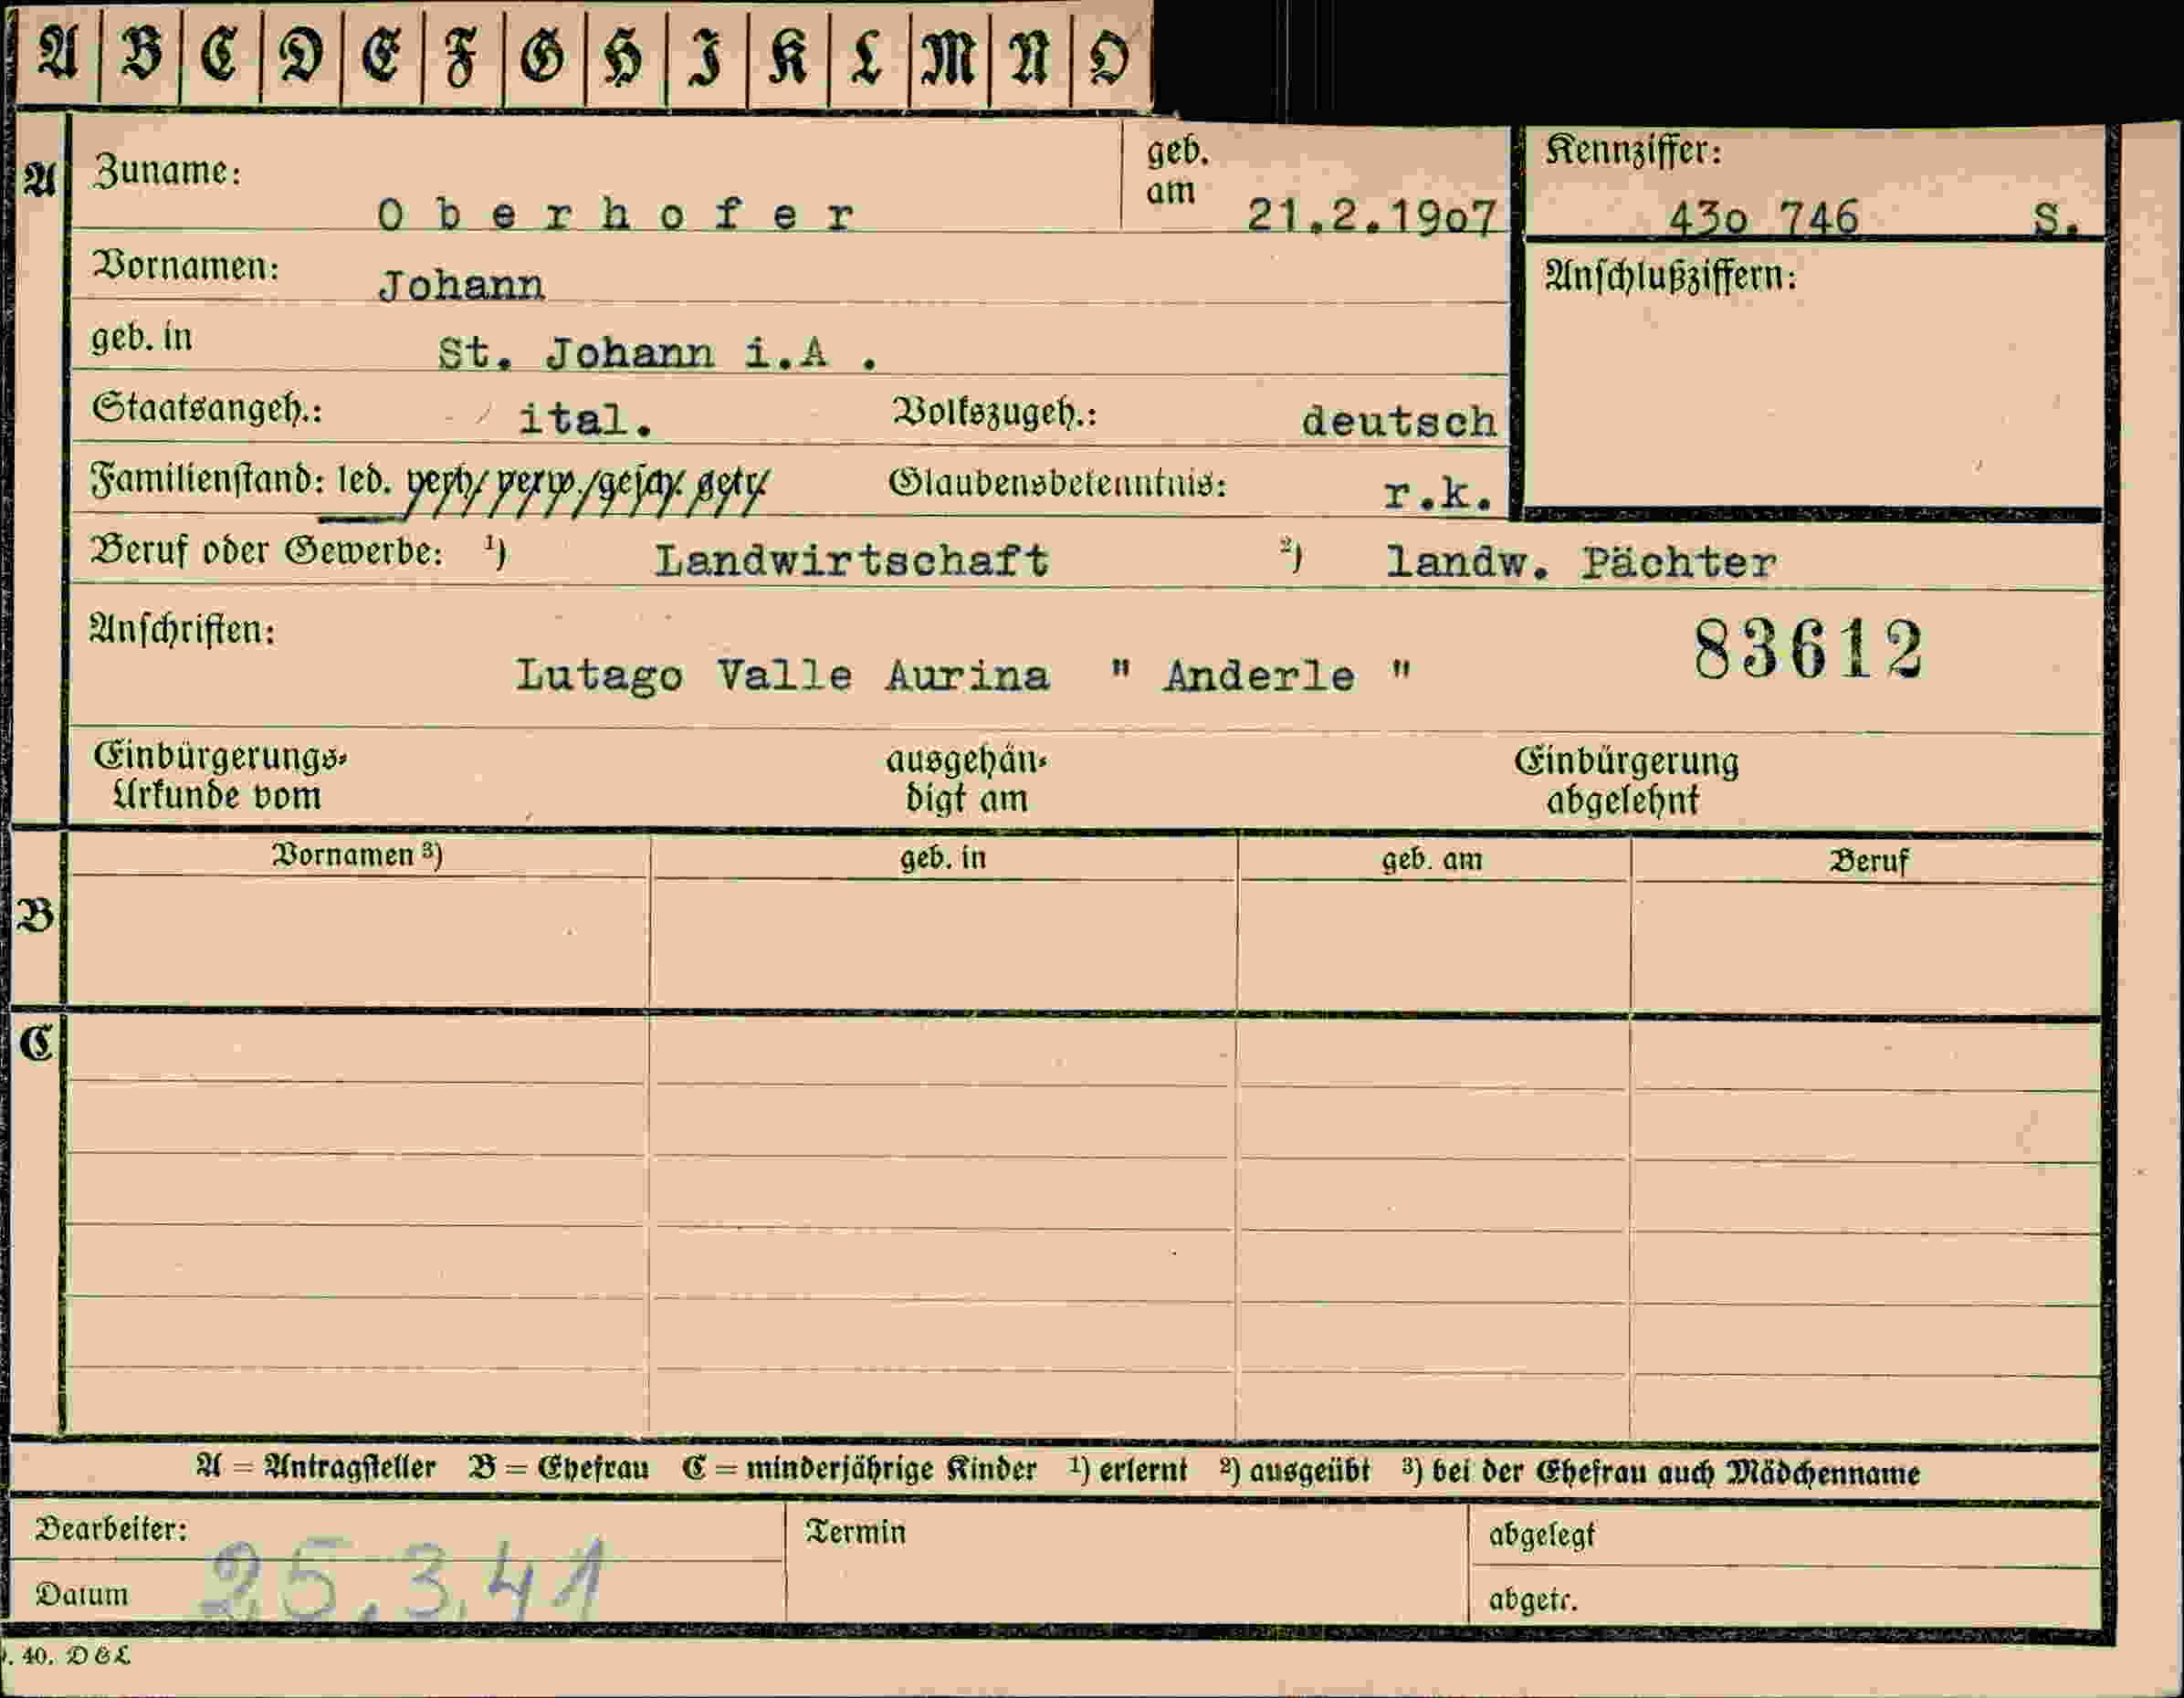 A B C D E F G H J K L M N O
A Zuname: Oberhofer geb. am 21.2.19o7 Kennziffer: 43o 746 S.
Vornamen: Johann Anschlußziffern:
geb. in St. Johann i.A .
Staatsangeh.: ital. Volkszugeh.: deutsch
Familienstand: led. verh. verw. gesch. getr. Glaubensbekenntnis: r.k.
Beruf oder Gewerbe: ¹) Landwirtschaft ²) landw. Pächter
Anschriften: 83612
Lutago Valle Aurina " Anderle "
Einbürgerungs- ausgehän- Einbürgerung
Urkunde vom digt am abgelehnt
Vornamen ³) geb. in geb. am Beruf
B
C
A = Antragsteller B = Ehefrau C = minderjährige Kinder ¹) erlernt ²) ausgeübt ³) bei der Ehefrau auch Mädchenname
Bearbeiter: Termin abgelegt
Datum 25.3.41 abgetr.
. 40. D & L